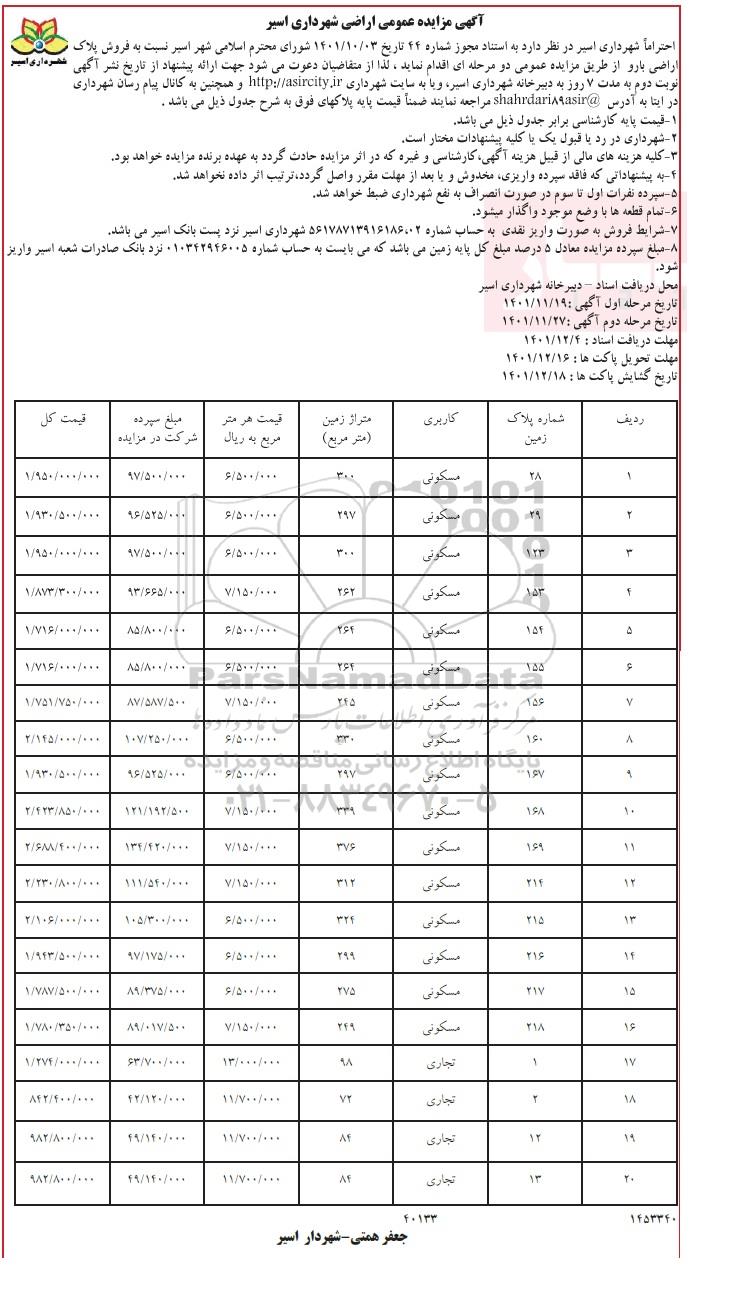 آگهی مزایده عمومی اراضی شهرداری اسیر
شهرداری اسیر
احتراماً شهرداری اسیر در نظر دارد به استناد مجوز شماره ۴۴ تاریخ ۱۴۰۱/۱۰/۰۳ شورای محترم اسلامی شهر اسیر نسبت به فروش پلاک
اراضی بارو از طریق مزایده عمومی دو مرحله ای اقدام نماید ، لذا از متقاضیان دعوت می شود جهت ارائه پیشنهاد از تاریخ نشر آگهی
نوبت دوم به مدت ۷ روز به دبیرخانه شهرداری اسیر، ویا به سایت شهرداری http://asircity.ir و همچنین به کانال پیام رسان شهرداری
در ایتا به آدرس @shahrdari۸۹asir مراجعه نمایند ضمناً قیمت پایه پلاکهای فوق به شرح جدول ذیل می باشد .
۱-قیمت پایه کارشناسی برابر جدول ذیل می باشد.
۲-شهرداری در رد یا قبول یک یا کلیه پیشنهادات مختار است.
۳-کلیه هزینه های مالی از قبیل هزینه آگهی،کارشناسی و غیره که در اثر مزایده حادث گردد به عهده برنده مزایده خواهد بود.
۴-به پیشنهاداتی که فاقد سپرده واریزی، مخدوش و یا بعد از مهلت مقرر واصل گردد،ترتیب اثر داده نخواهد شد.
۵-سپرده نفرات اول تا سوم در صورت انصراف به نفع شهرداری ضبط خواهد شد.
۶-تمام قطعه ها با وضع موجود واگذار میشود.
۷-شرایط فروش به صورت واریز نقدی به حساب شماره ۵۶۱۷۸۷۱۳۹۱۶۱۸۶،۰۲ شهرداری اسیر نزد پست بانک اسیر می باشد.
۸-مبلغ سپرده مزایده معادل ۵ درصد مبلغ کل پایه زمین می باشد که می بایست به حساب شماره ۰۱۰۳۴۲۹۴۶۰۰۵ نزد بانک صادرات شعبه اسیر واریز
شود.
محل دریافت اسناد – دبیرخانه شهرداری اسیر
تاریخ مرحله اول آگهی :۱۴۰۱/۱۱/۱۹
تاریخ مرحله دوم آگهی :۱۴۰۱/۱۱/۲۷
مهلت دریافت اسناد : ۱۴۰۱/۱۲/۴
مهلت تحویل پاکت ها : ۱۴۰۱/۱۲/۱۶
تاریخ گشایش پاکت ها : ۱۴۰۱/۱۲/۱۸
ردیف شماره پلاک زمین کاربری متراژ زمین (متر مربع) قیمت هر متر مربع به ریال مبلغ سپرده شرکت در مزایده قیمت کل
۱ ۲۸ مسکونی ۳۰۰ ۶/۵۰۰/۰۰۰ ۹۷/۵۰۰/۰۰۰ ۱/۹۵۰/۰۰۰/۰۰۰
۲ ۲۹ مسکونی ۲۹۷ ۶/۵۰۰/۰۰۰ ۹۶/۵۲۵/۰۰۰ ۱/۹۳۰/۵۰۰/۰۰۰
۳ ۱۲۳ مسکونی ۳۰۰ ۶/۵۰۰/۰۰۰ ۹۷/۵۰۰/۰۰۰ ۱/۹۵۰/۰۰۰/۰۰۰
۴ ۱۵۳ مسکونی ۲۶۲ ۷/۱۵۰/۰۰۰ ۹۳/۶۶۵/۰۰۰ ۱/۸۷۳/۳۰۰/۰۰۰
۵ ۱۵۴ مسکونی ۲۶۴ ۶/۵۰۰/۰۰۰ ۸۵/۸۰۰/۰۰۰ ۱/۷۱۶/۰۰۰/۰۰۰
۶ ۱۵۵ مسکونی ۲۶۴ ۶/۵۰۰/۰۰۰ ۸۵/۸۰۰/۰۰۰ ۱/۷۱۶/۰۰۰/۰۰۰
۷ ۱۵۶ مسکونی ۲۴۵ ۷/۱۵۰/۰۰۰ ۸۷/۵۸۷/۵۰۰ ۱/۷۵۱/۷۵۰/۰۰۰
۸ ۱۶۰ مسکونی ۳۳۰ ۶/۵۰۰/۰۰۰ ۱۰۷/۲۵۰/۰۰۰ ۲/۱۴۵/۰۰۰/۰۰۰
۹ ۱۶۷ مسکونی ۲۹۷ ۶/۵۰۰/۰۰۰ ۹۶/۵۲۵/۰۰۰ ۱/۹۳۰/۵۰۰/۰۰۰
۱۰ ۱۶۸ مسکونی ۳۳۹ ۷/۱۵۰/۰۰۰ ۱۲۱/۱۹۲/۵۰۰ ۲/۴۲۳/۸۵۰/۰۰۰
۱۱ ۱۶۹ مسکونی ۳۷۶ ۷/۱۵۰/۰۰۰ ۱۳۴/۴۲۰/۰۰۰ ۲/۶۸۸/۴۰۰/۰۰۰
۱۲ ۲۱۴ مسکونی ۳۱۲ ۷/۱۵۰/۰۰۰ ۱۱۱/۵۴۰/۰۰۰ ۲/۲۳۰/۸۰۰/۰۰۰
۱۳ ۲۱۵ مسکونی ۳۲۴ ۶/۵۰۰/۰۰۰ ۱۰۵/۳۰۰/۰۰۰ ۲/۱۰۶/۰۰۰/۰۰۰
۱۴ ۲۱۶ مسکونی ۲۹۹ ۶/۵۰۰/۰۰۰ ۹۷/۱۷۵/۰۰۰ ۱/۹۴۳/۵۰۰/۰۰۰
۱۵ ۲۱۷ مسکونی ۲۷۵ ۶/۵۰۰/۰۰۰ ۸۹/۳۷۵/۰۰۰ ۱/۷۸۷/۵۰۰/۰۰۰
۱۶ ۲۱۸ مسکونی ۲۴۹ ۷/۱۵۰/۰۰۰ ۸۹/۰۱۷/۵۰۰ ۱/۷۸۰/۳۵۰/۰۰۰
۱۷ ۱ تجاری ۹۸ ۱۳/۰۰۰/۰۰۰ ۶۳/۷۰۰/۰۰۰ ۱/۲۷۴/۰۰۰/۰۰۰
۱۸ ۲ تجاری ۷۲ ۱۱/۷۰۰/۰۰۰ ۴۲/۱۲۰/۰۰۰ ۸۴۲/۴۰۰/۰۰۰
۱۹ ۱۲ تجاری ۸۴ ۱۱/۷۰۰/۰۰۰ ۴۹/۱۴۰/۰۰۰ ۹۸۲/۸۰۰/۰۰۰
۲۰ ۱۳ تجاری ۸۴ ۱۱/۷۰۰/۰۰۰ ۴۹/۱۴۰/۰۰۰ ۹۸۲/۸۰۰/۰۰۰
ParsNamadData
مرکز فرآوری اطلاعات پارس نماد داده ها
پایگاه اطلاع رسانی مناقصه و مزایده
۰۲۱-۸۸۳۴۹۶۷۰-۵
۱۴۵۳۳۴۰ ۴۰۱۳۳
جعفر همتی-شهردار اسیر